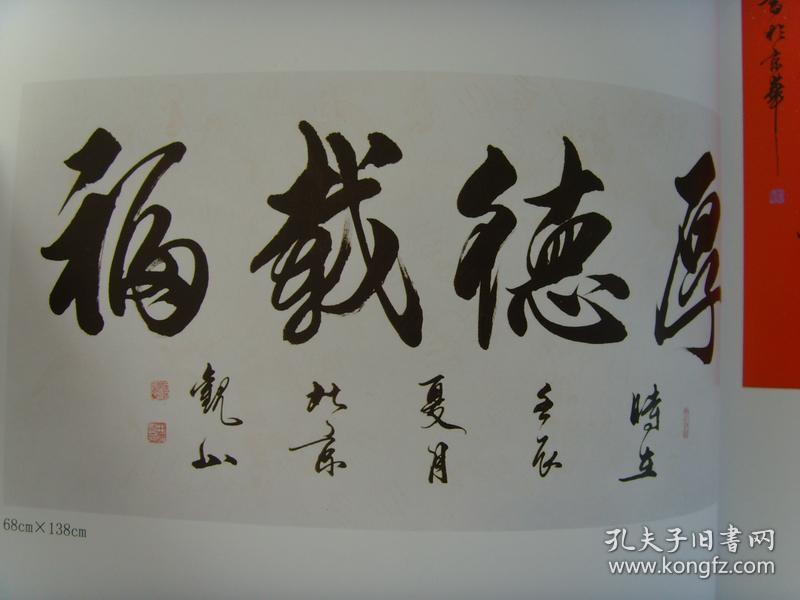 厚德載福
時在
壬辰
夏月
北京
觀山
68cm×138cm
書於京華
孔夫子旧书网
www.kongfz.com